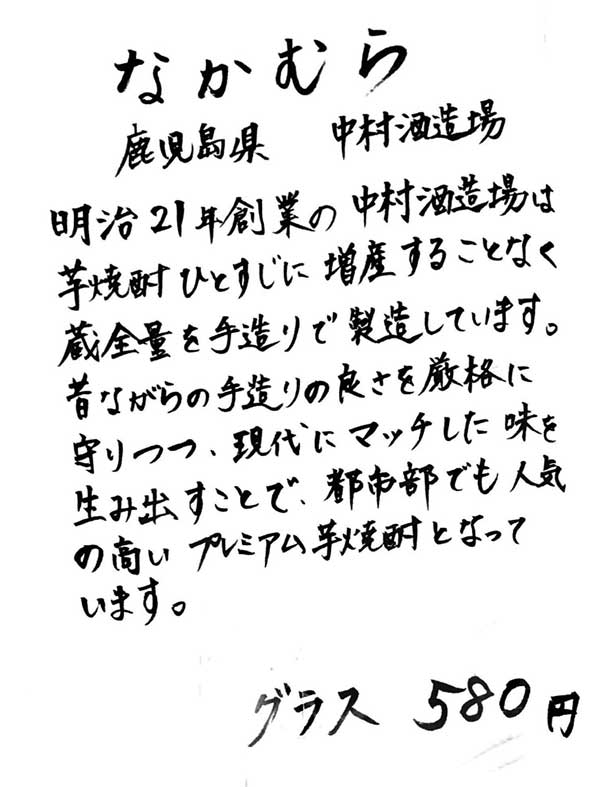 なかむら
鹿児島県 中村酒造場
明治21年創業の中村酒造場は
芋焼酎ひとすじに増産することなく
蔵全量を手造りで製造しています。
昔ながらの手造りの良さを厳格に
守りつつ、現代にマッチした味を
生み出すことで、都市部でも人気
の高いプレミアム芋焼酎となって
います。
グラス 580円